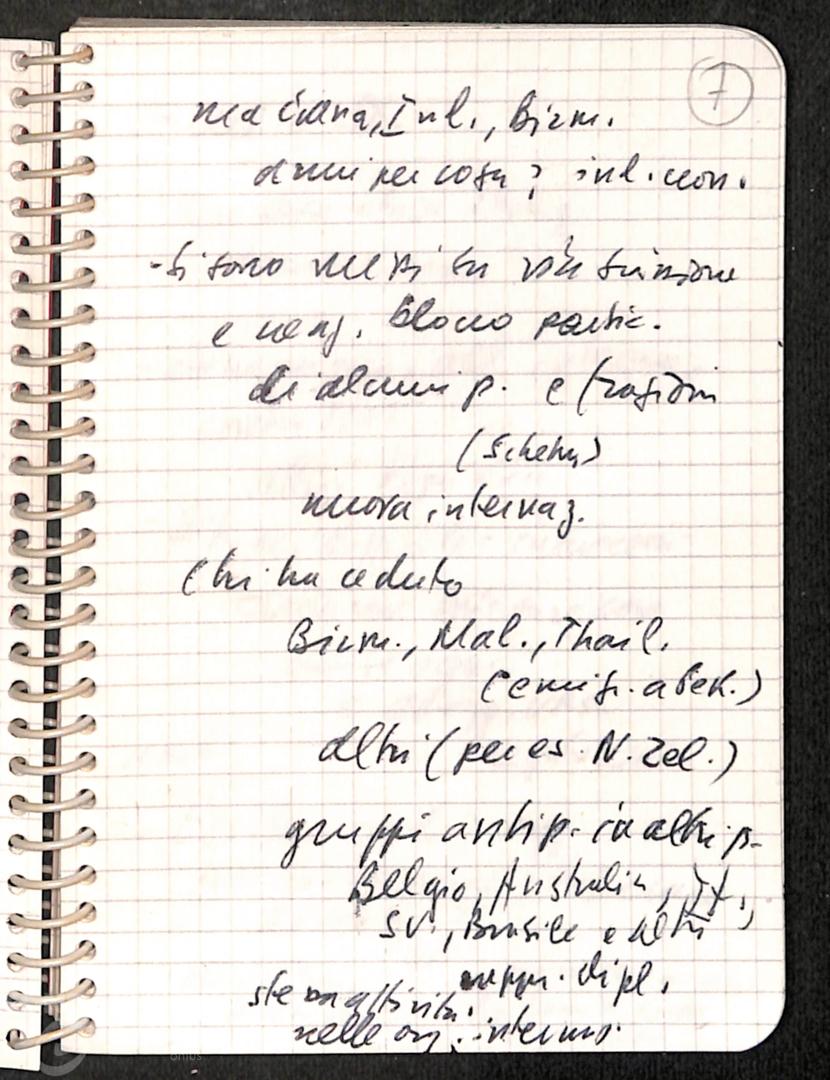 7
nea Ciana, Ind., Birm.
per cosa? ind.
- si sono messi su
e neg. blocco partic.
di alcuni p. e
(Schema)
nuova internaz.
Chi ha ceduto
Birm., Mal., Thail.
(emigr. a Pek.)
altri (per es. N. Zel.)
gruppi antip. in altri p.
Belgio, Australia, It.,
SV., Brasile e altri
rappr. dipl.
stessa attività
nelle org. internaz.
onlus